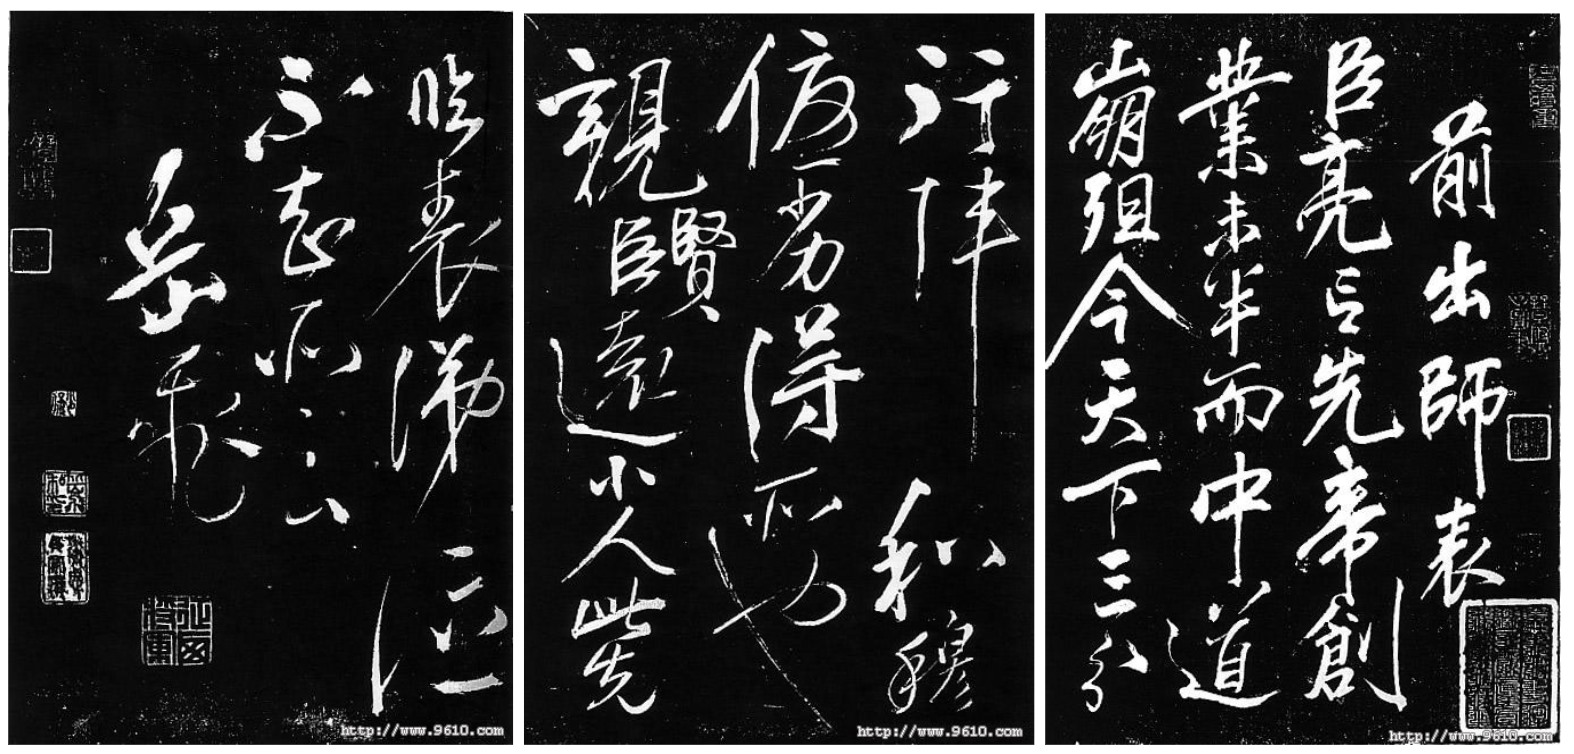 前出師表
臣亮言先帝創
業未半而中道
崩殂今天下三分
行陣和穆
優劣得所也
親賢臣遠小人此先
臨表涕泣
不知所云
岳飛
http://www.9610.com
http://www.9610.com
http://www.9610.com